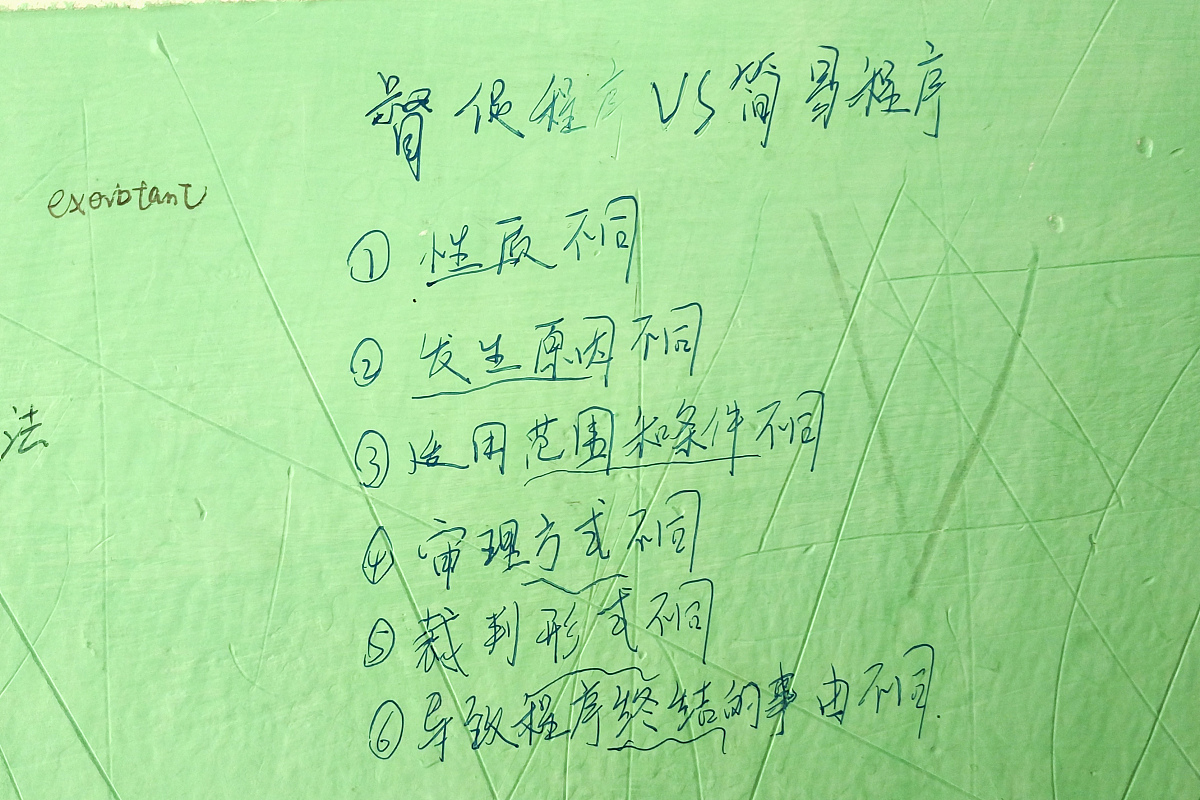 督促程序 VS 简易程序
exorbtant
① 性质不同
② 发生原因不同
③ 适用范围和条件不同
法
④ 审理方式不同
⑤ 裁判形式不同
⑥ 导致程序终结的事由不同.